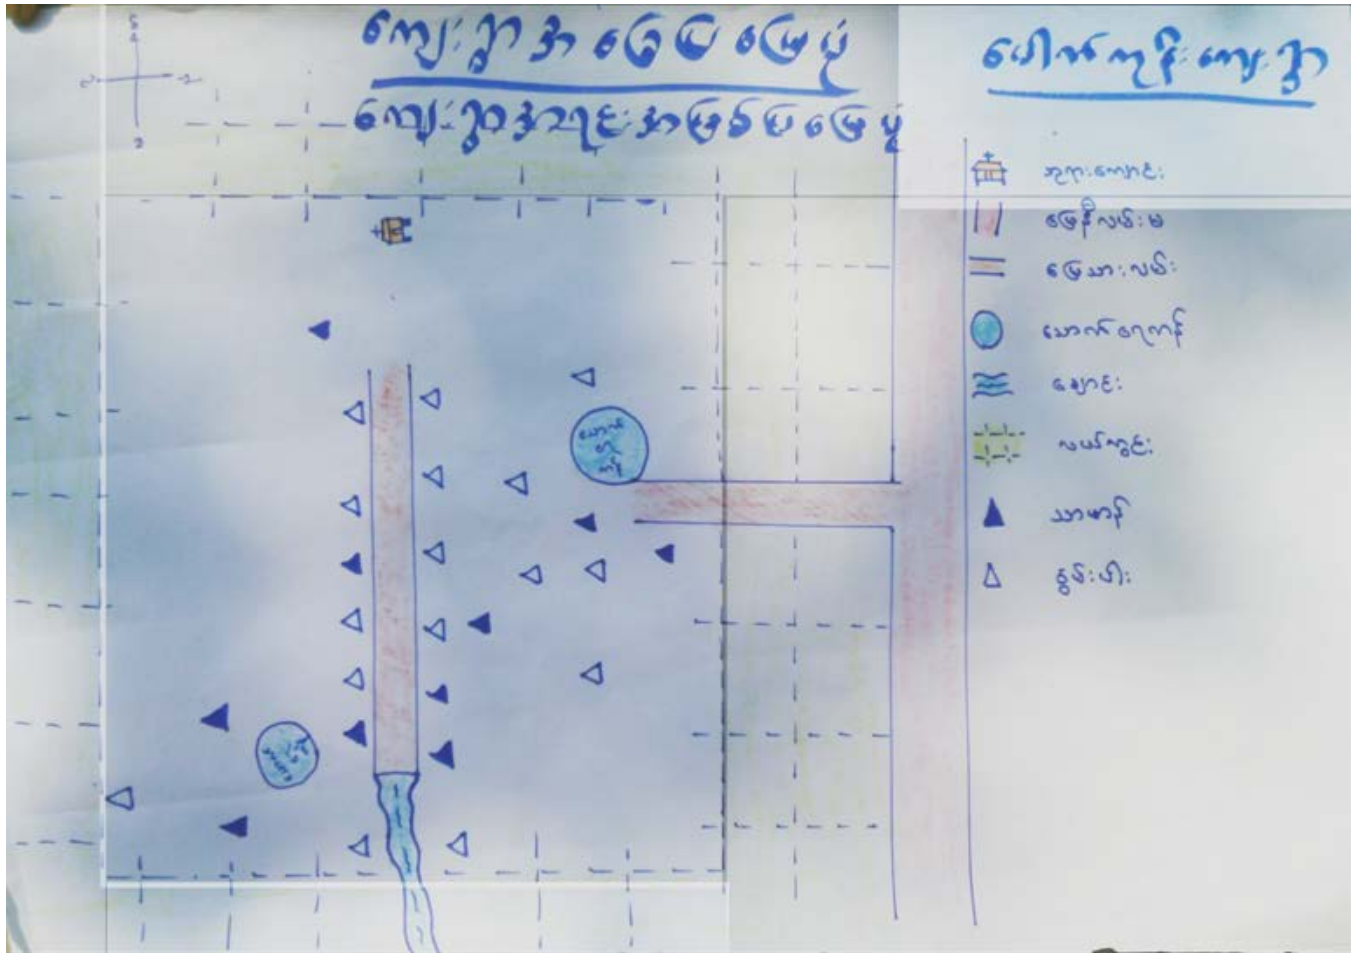 ကျေးရွာအခြေပြမြေပုံ
ကျေးရွာအရင်းအမြစ်ပြမြေပုံ
ပေါက်ကုန်းကျေးရွာ
ဘုရားကျောင်း
မြေနီလမ်းမ
မြေသားလမ်း
သောက်ရေကန်
ချောင်း
လယ်ကွင်း
သာမာန်
နွမ်းပါး
သောက်
ရေ
ကန်